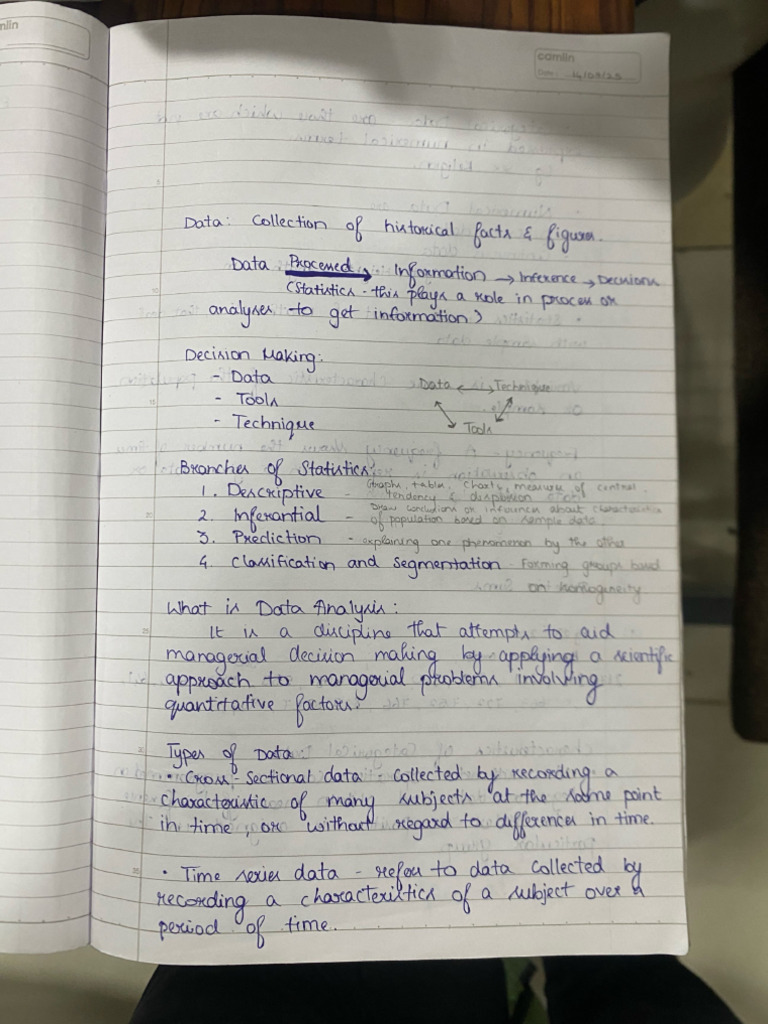 mlin
camlin
Date: 14/09/25
Data: Collection of historical facts & figures.
Data Processed → Information → Inference → Decisions
(Statistics - this plays a role in process or
analyses to get information)
Decision Making:
- Data
- Tools
- Technique
Data ↔ Technique
Tools
Branches of Statistics:
1. Descriptive - Graphs, tables, charts, measure of central
tendency & dispersion
2. Inferantial - Draw conclusions or inferences about characteristics
of population based on sample data
3. Prediction - explaining one phenomenon by the other
4. Classification and Segmentation - Forming groups based
on homogeneity
What is Data Analysis:
It is a discipline that attempts to aid
managerial decision making by applying a scientific
approach to managerial problems involving
quantitative factors.
Types of Data:
• Cross-Sectional data - collected by recording a
characteristic of many subjects at the same point
in time, or without regard to differences in time.
• Time series data - refers to data collected by
recording a characteristics of a subject over a
period of time.